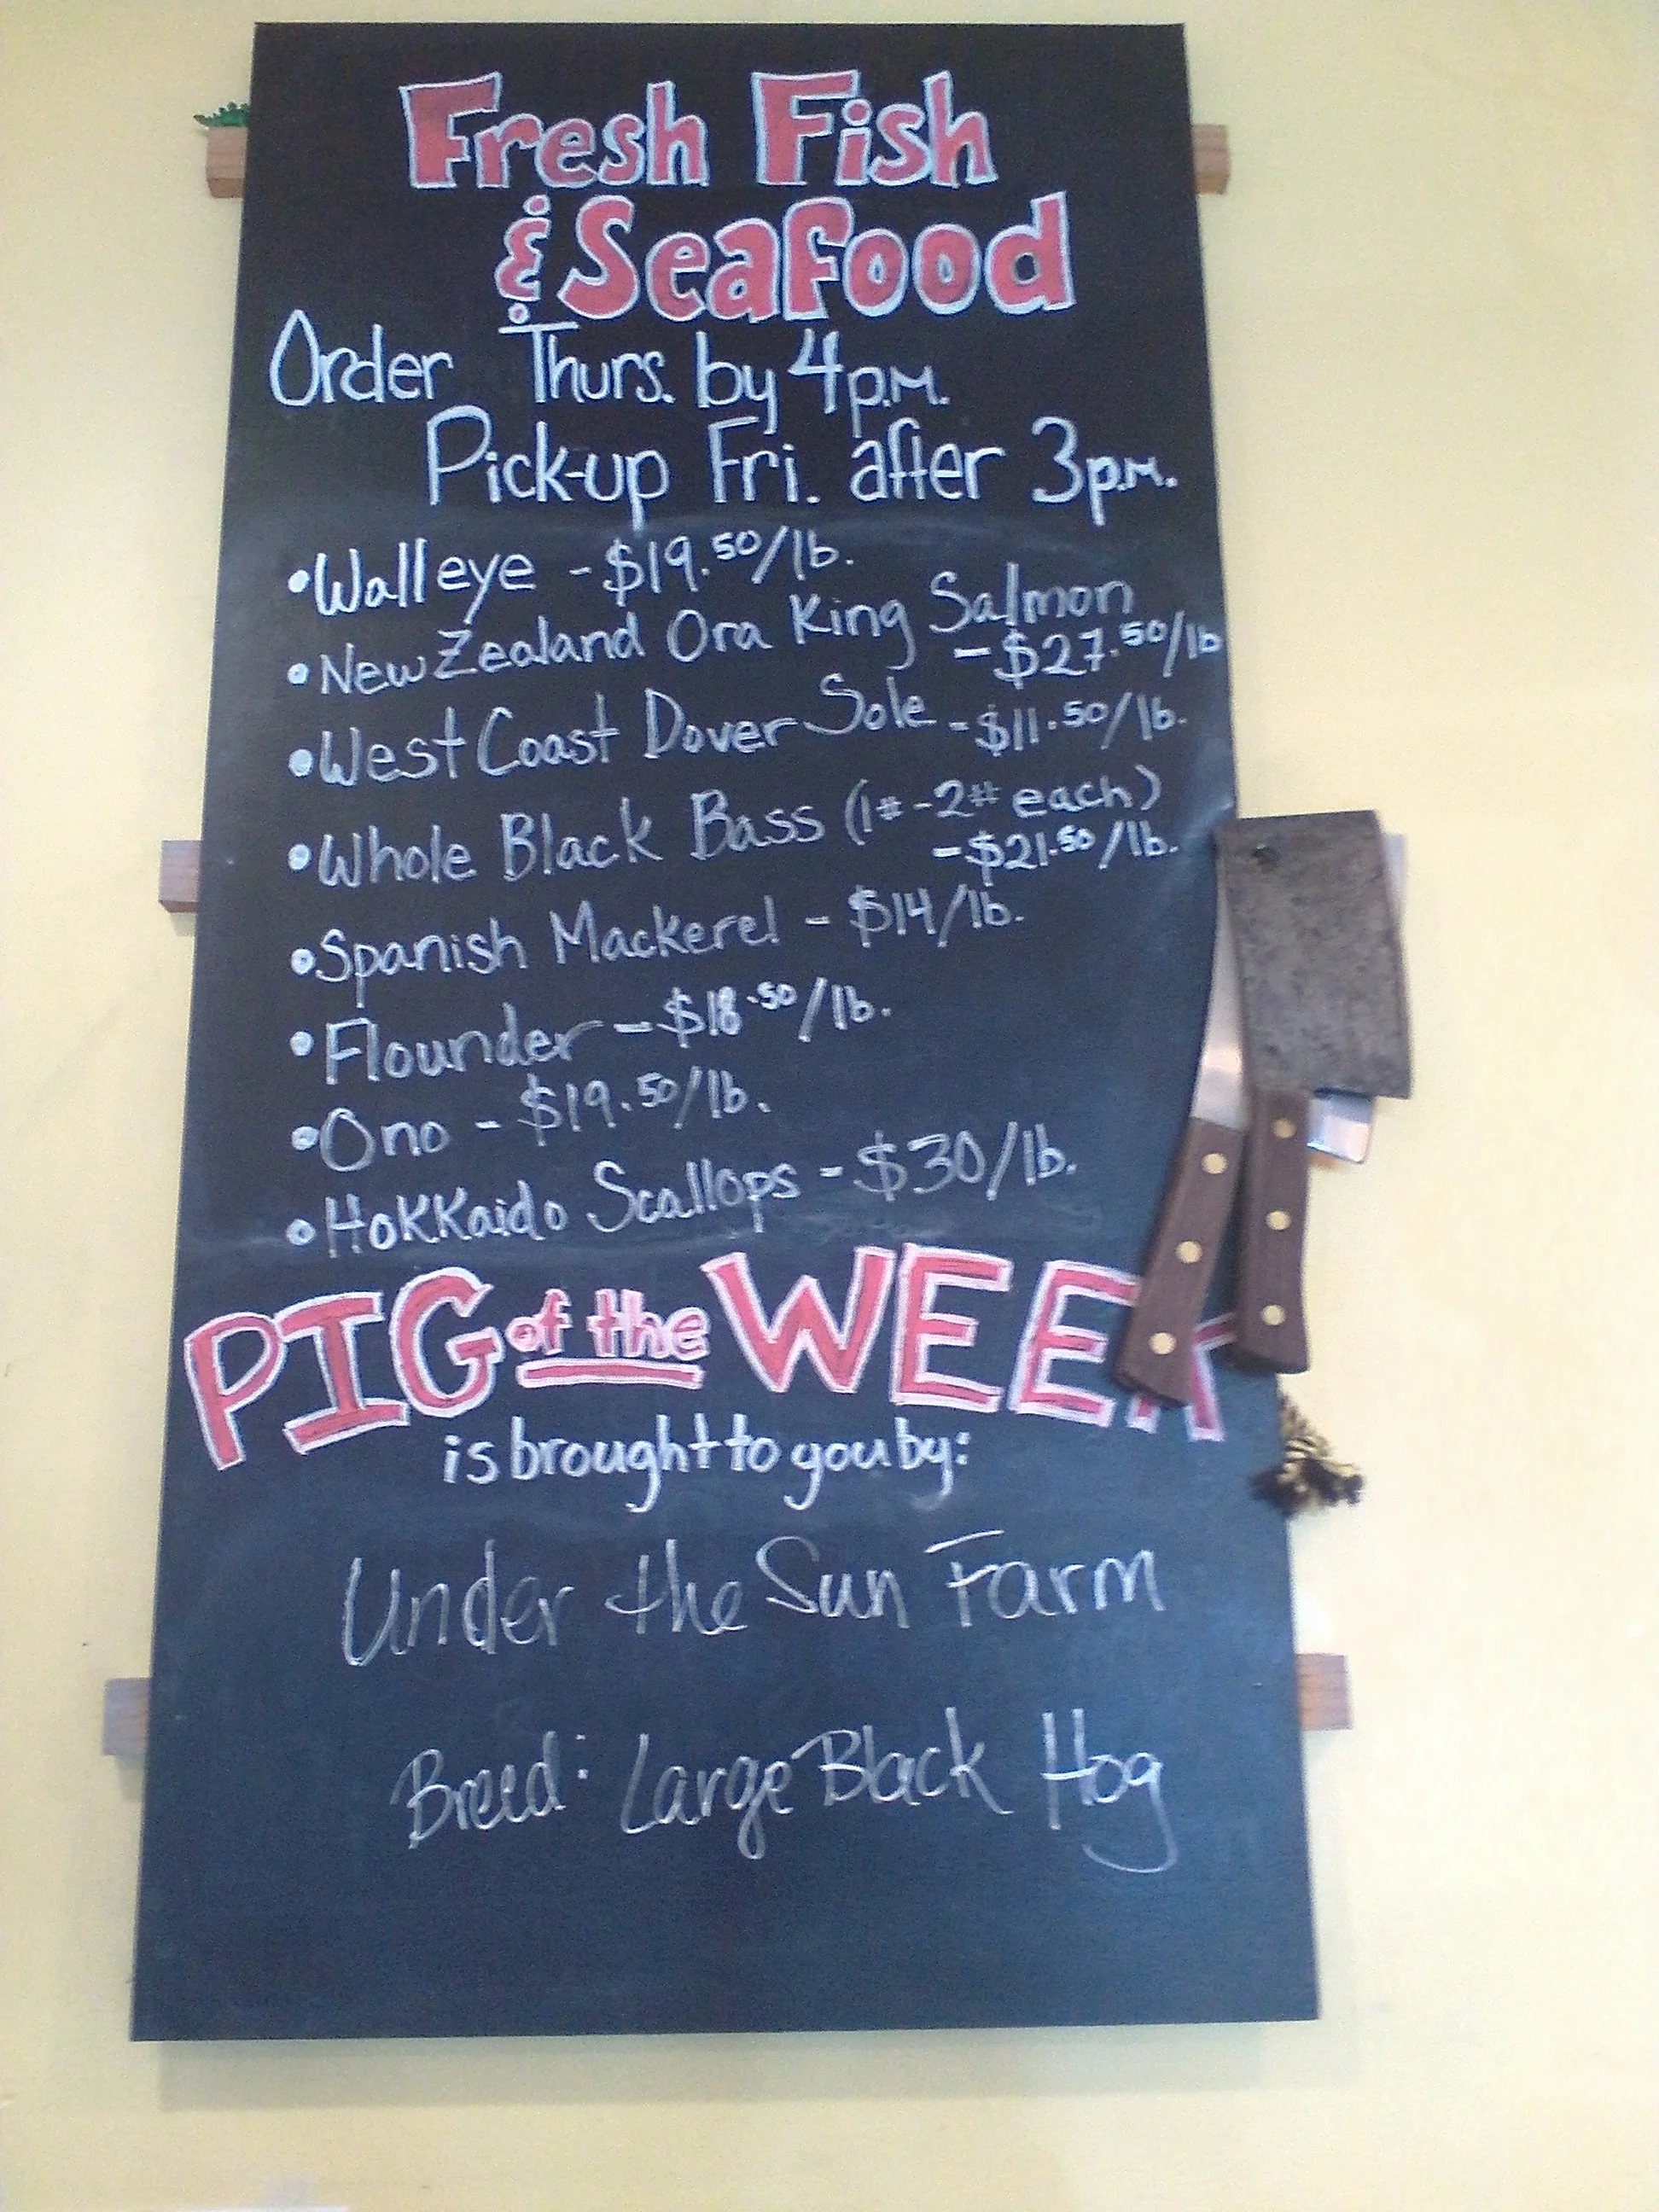 Fresh Fish
& Seafood
Order Thurs. by 4p.m.
Pick-up Fri. after 3p.m.
• Walleye - $19.50/lb.
• New Zealand Ora King Salmon
- $27.50/lb
• West Coast Dover Sole - $11.50/lb.
• Whole Black Bass (1#-2# each)
- $21.50/lb.
• Spanish Mackerel - $14/lb.
• Flounder - $18.50/lb.
• Ono - $19.50/lb.
• Hokkaido Scallops - $30/lb.
PIG of the WEEK
is brought to you by:
Under the Sun Farm
Breed: Large Black Hog